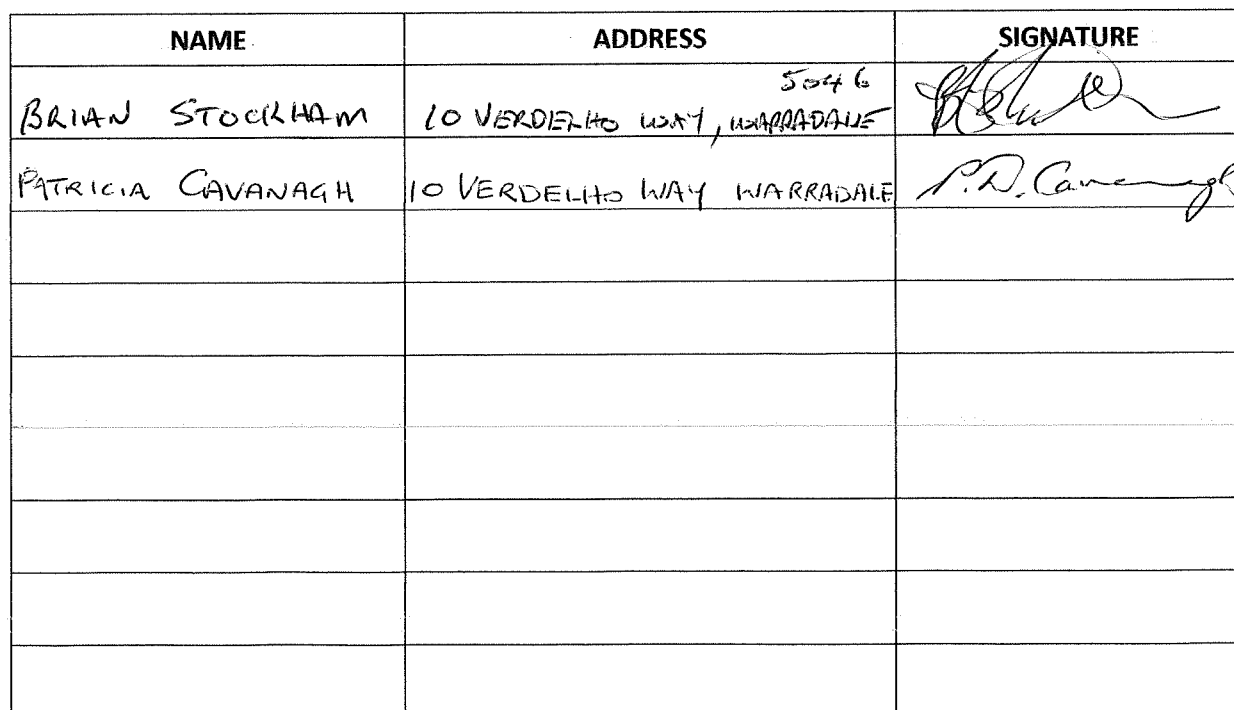 NAME ADDRESS SIGNATURE
5046
BRIAN STOCKHAM 10 VERDELHO WAY, WARRADALE
PATRICIA CAVANAGH 10 VERDELHO WAY WARRADALE P.D. Cavanagh